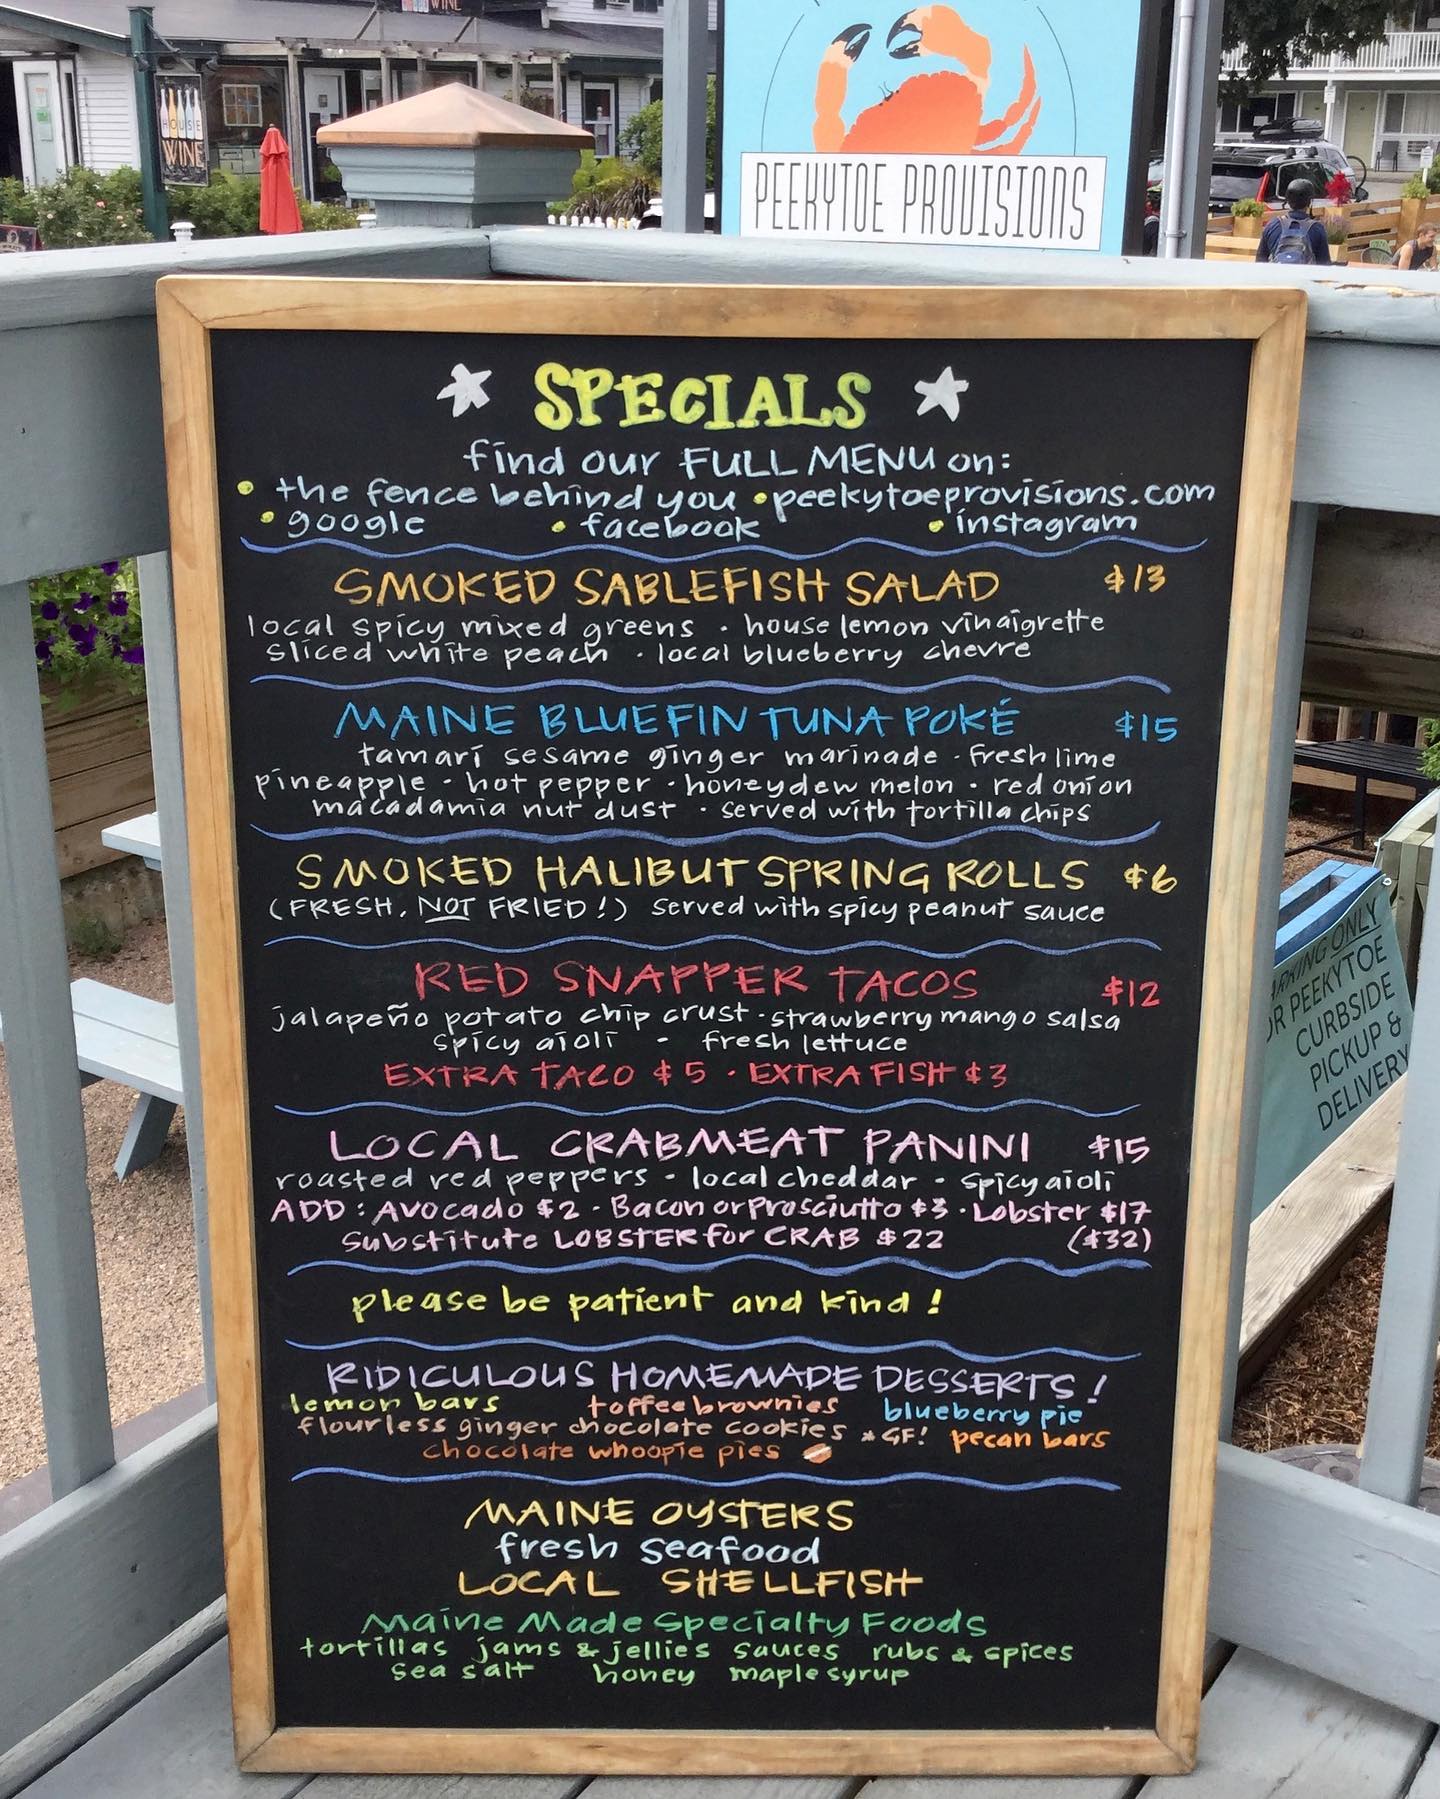 WINE
HOUSE
WINE
PEEKYTOE PROVISIONS
SPECIALS
find our FULL MENU on:
• the fence behind you • peekytoeprovisions.com
• google • facebook • instagram
SMOKED SABLEFISH SALAD $13
local spicy mixed greens · house lemon vinaigrette
sliced white peach · local blueberry chevre
MAINE BLUEFIN TUNA POKÉ $15
tamari sesame ginger marinade · fresh lime
pineapple · hot pepper · honeydew melon · red onion
macadamia nut dust · served with tortilla chips
SMOKED HALIBUT SPRING ROLLS $6
(FRESH, NOT FRIED!) served with spicy peanut sauce
RED SNAPPER TACOS $12
jalapeño potato chip crust · strawberry mango salsa
spicy aioli - fresh lettuce
EXTRA TACO $5 · EXTRA FISH $3
LOCAL CRABMEAT PANINI $15
roasted red peppers · local cheddar · spicy aioli
ADD: Avocado $2 · Bacon or Prosciutto $3 · Lobster $17
Substitute LOBSTER for CRAB $22 ($32)
please be patient and kind!
RIDICULOUS HOMEMADE DESSERTS!
lemon bars toffee brownies blueberry pie
flourless ginger chocolate cookies *GF! pecan bars
chocolate whoopie pies
MAINE OYSTERS
fresh seafood
LOCAL SHELLFISH
Maine Made Specialty Foods
tortillas jams & jellies sauces rubs & spices
sea salt honey maple syrup
ARKING ONLY
OR PEEKYTOE
CURBSIDE
PICKUP &
DELIVERY